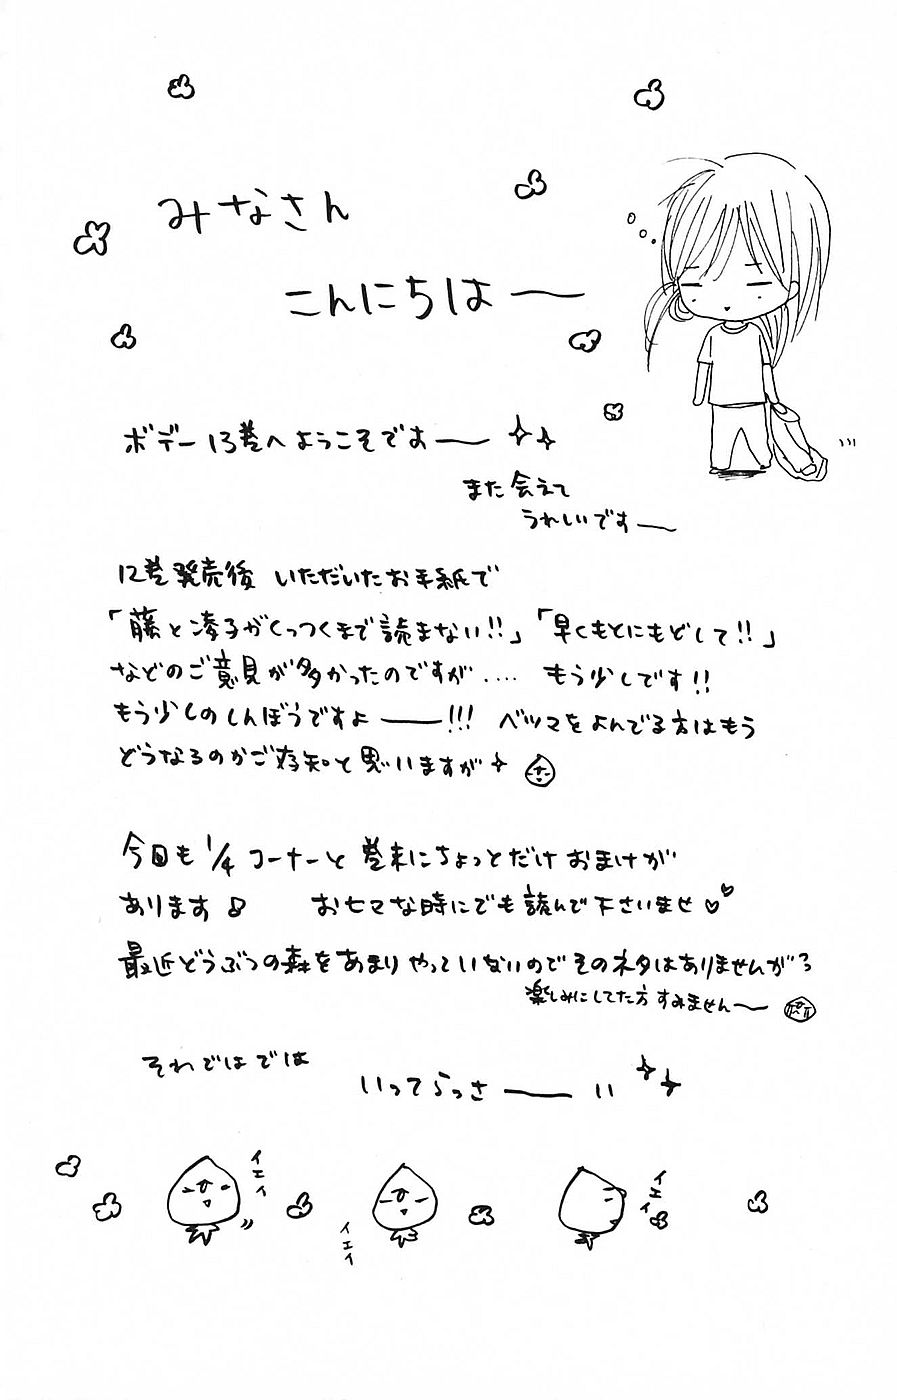 みなさん
こんにちはー
ボデー13巻へようこそですー
また会えて
うれしいですー
12巻発売後 いただいたお手紙で
「藤と凌子がくっつくまで読まない!!」「早くもとにもどして!!」
などのご意見が多かったのですが.... もう少しです!!
もう少しのしんぼうですよー!!! ベツマをよんでる方はもう
どうなるのかご存知と思いますが
今回も1/4コーナーと巻末にちょっとだけおまけが
あります♪ おヒマな時にでも読んで下さいませ♡♡
最近どうぶつの森をあまりやっていないのでそのネタはありませんが
楽しみにしてた方すみませんー
それではでは
いってらっさーい
イエイ
イエイ
イエイ